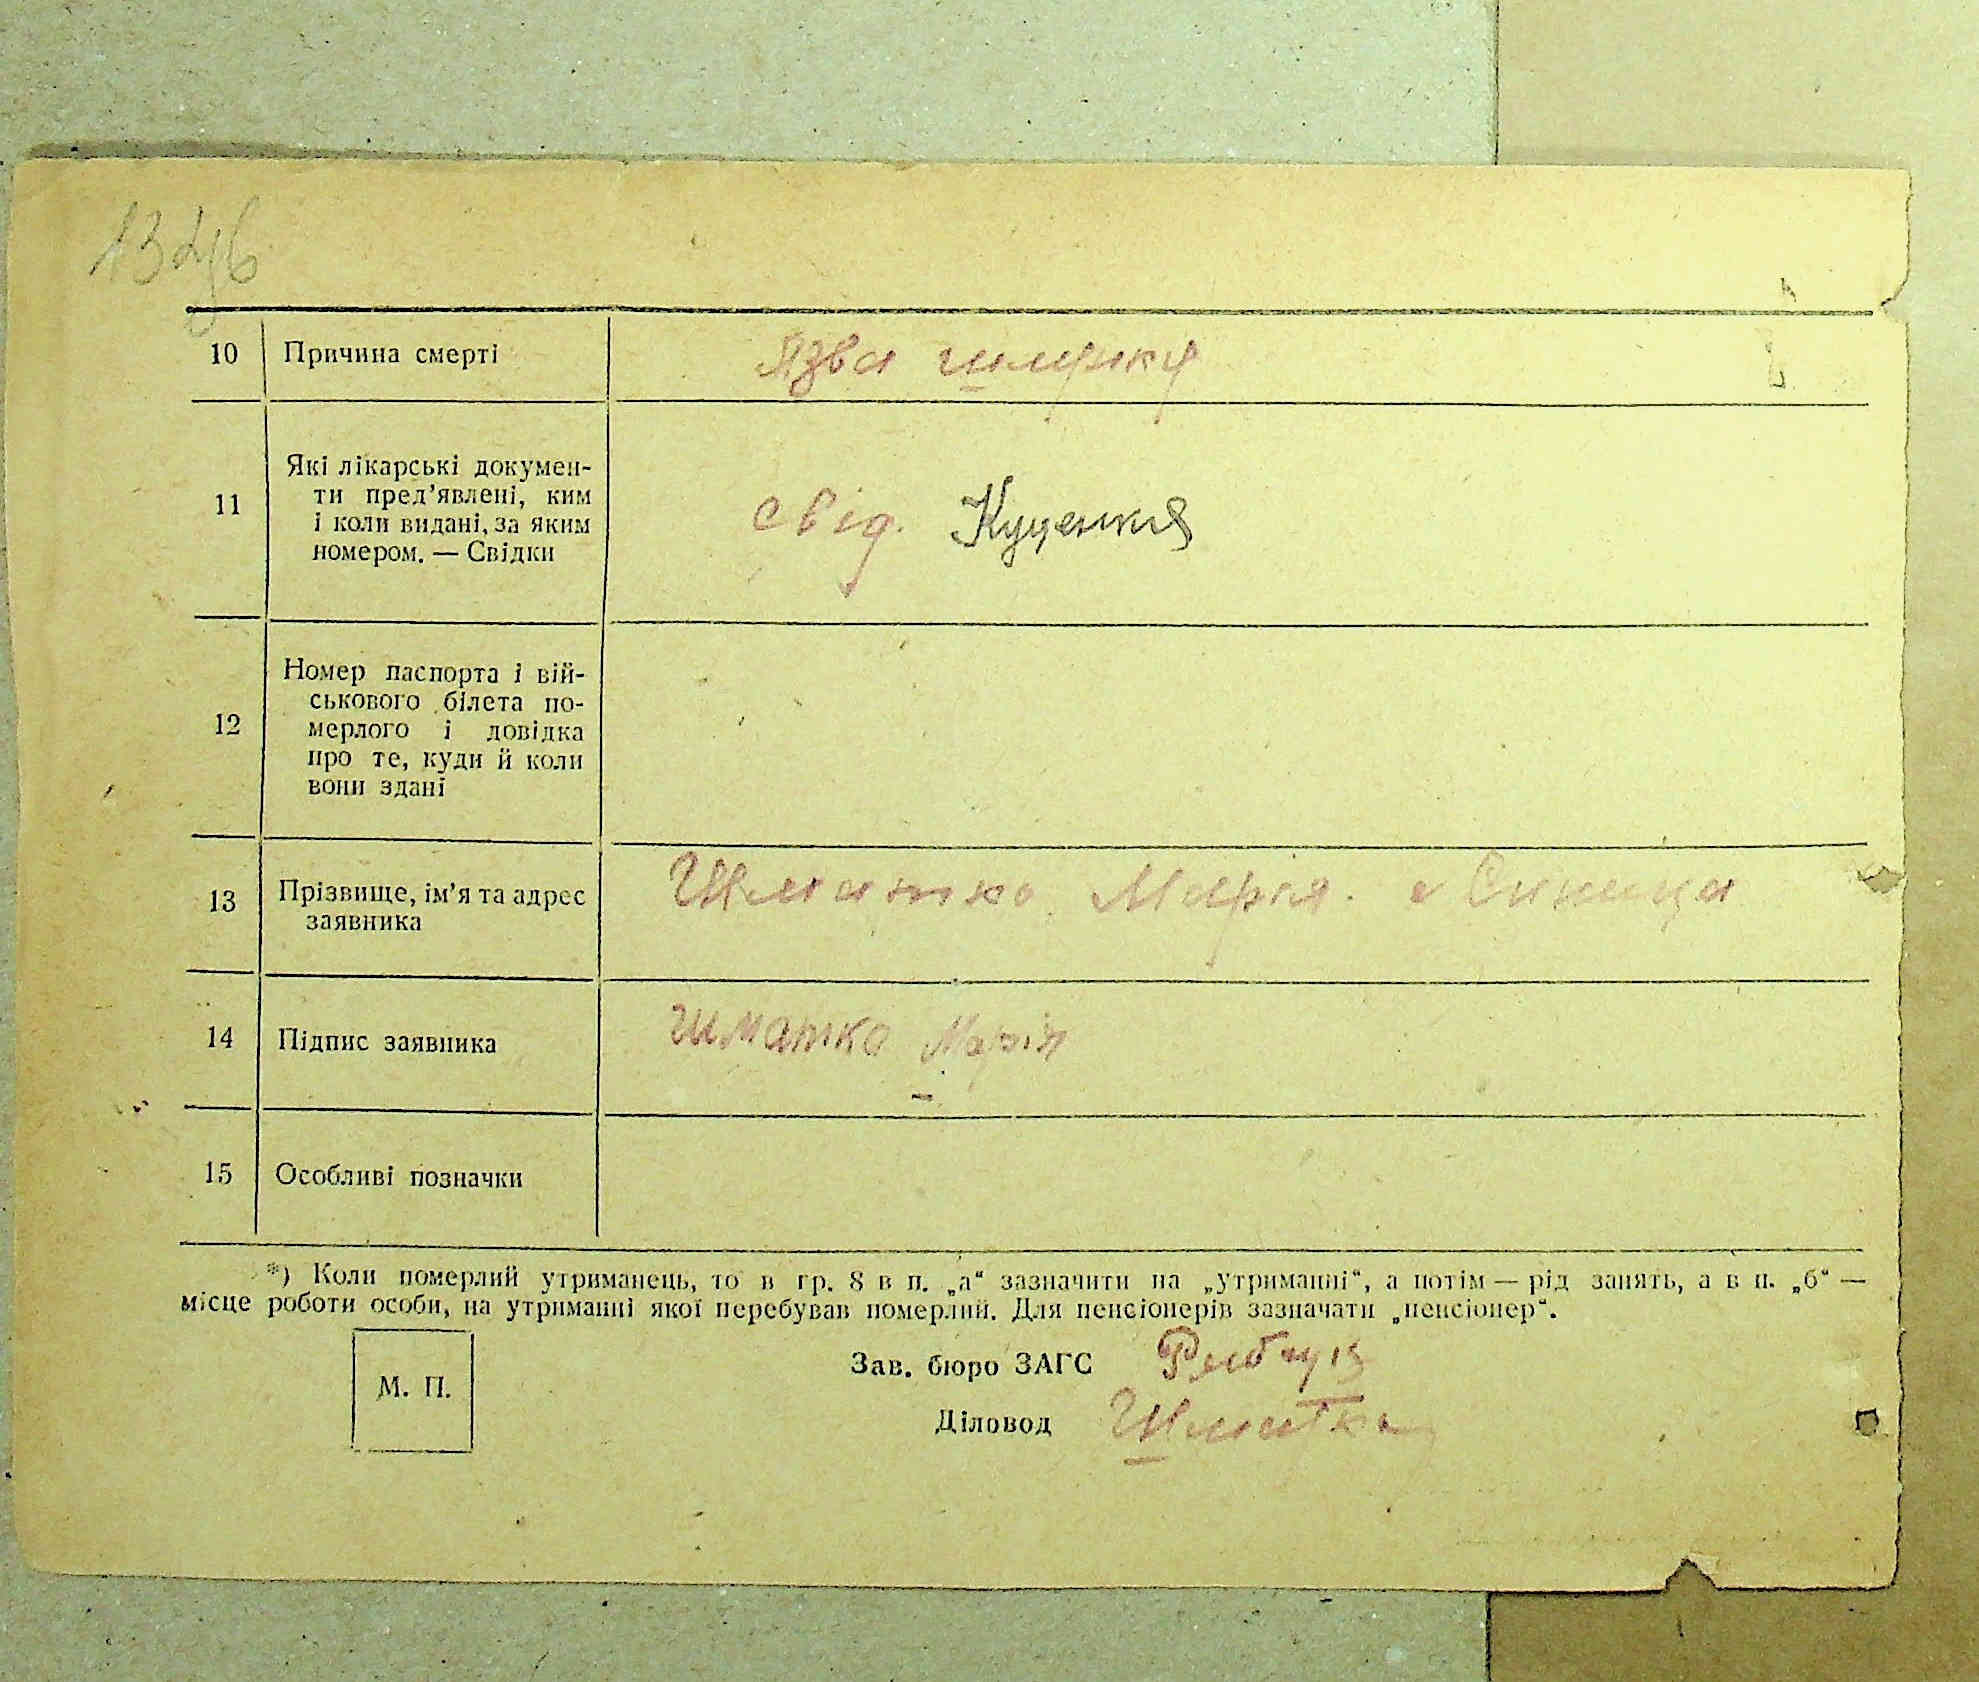 10 Причина смерті Язва шлунка
11 Які лікарські докумен-
ти пред'явлені, ким
і коли видані, за яким
номером. — Свідки
свід. Куценко
12 Номер паспорта і вій-
ськового білета по-
мерлого і довідка
про те, куди й коли
вони здані
13 Прізвище, ім'я та адрес
заявника
Шматко Марія. с Синиця
14 Підпис заявника Шматко Марія
15 Особливі позначки
*) Коли померлий утриманець, то в гр. 8 в п. „а“ зазначити на „утриманні“, а потім — рід занять, а в п. „б“ —
місце роботи особи, на утриманні якої перебував померлий. Для пенсіонерів зазначати „пенсіонер“.
М. П.
Зав. бюро ЗАГС
Діловод Шматко